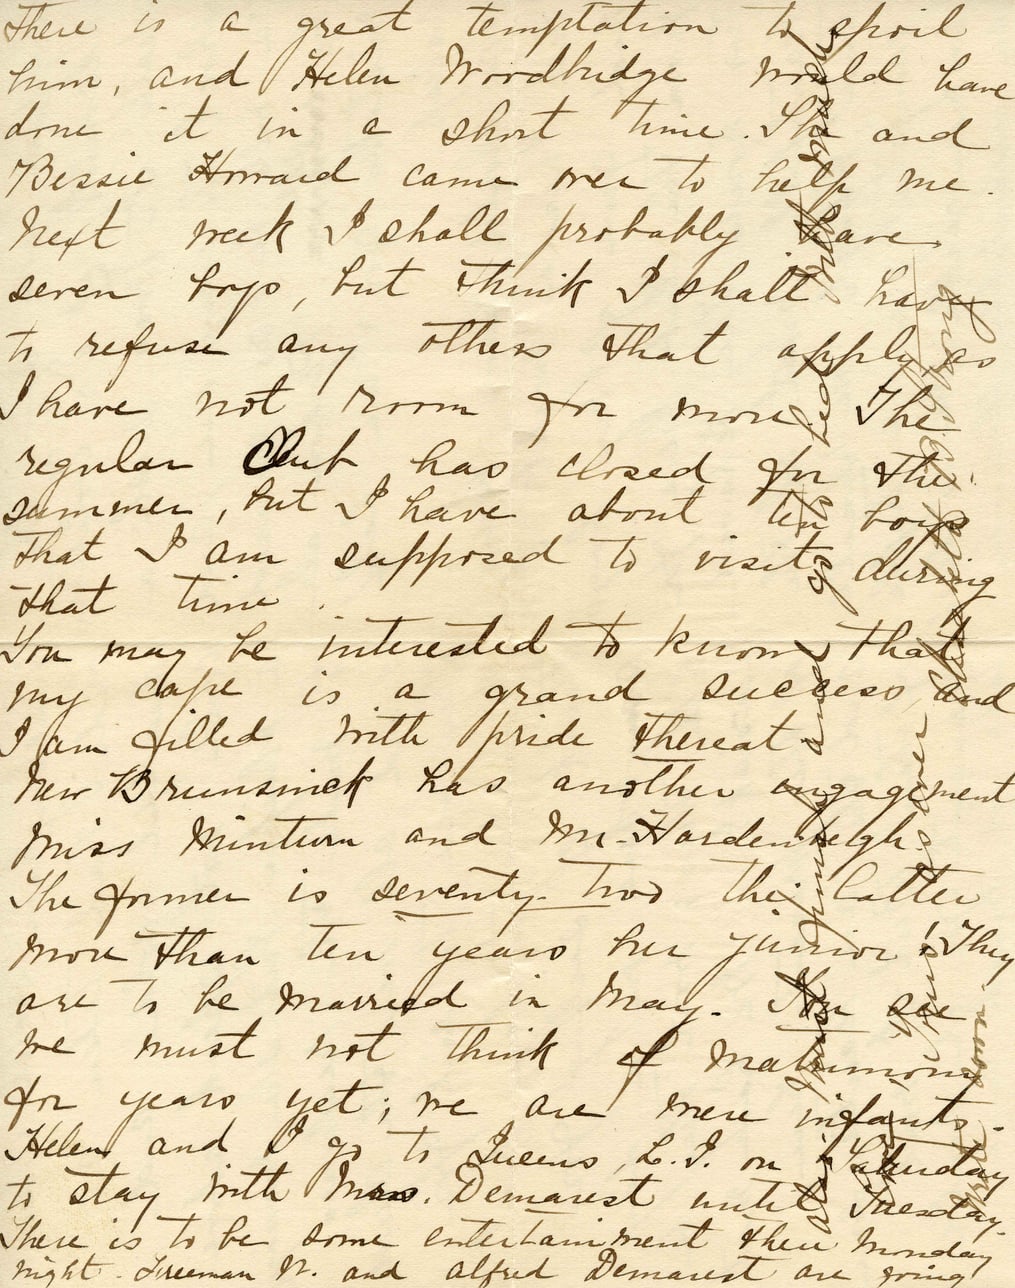 There is a great temptation to spoil
him, and Helen Woodbridge would have
done it in a short time. She and
Bessie Howard came over to help me.
Next week I shall probably have
seven boys, but think I shall have
to refuse any others that apply as
I have not room for more The
regular Club has closed for the
summer, but I have about ten boys
that I am supposed to visit during
that time.
You may be interested to know that
my cape is a grand success, and
I am filled with pride thereat
New Brunswick has another engagement
Miss Minturn and Mr. Hardenbergh.
The former is seventy-two the latter
more than ten years her junior! They
are to be married in May. You see
we must not think of matrimony
for years yet; we are mere infants.
Helen and I go to Queens, L.I. on Saturday
to stay with Mrs. Demarest until Tuesday.
There is to be some entertainment there Monday
night. Freeman W. and Alfred Demarest are going
also. I must jump and go to bed. With much
Yours as ever
Write soon